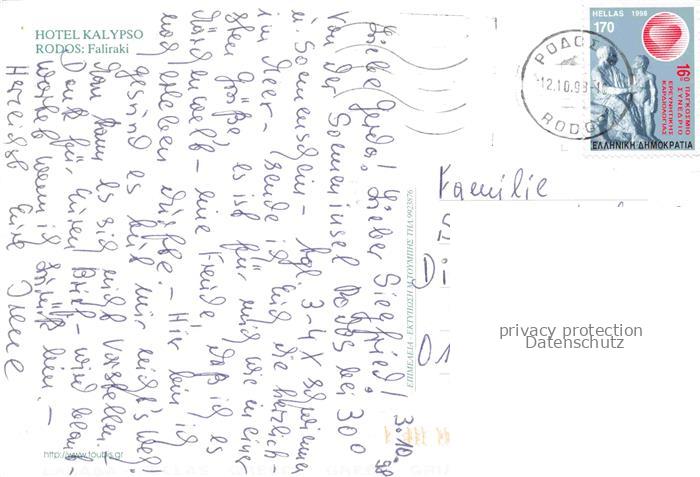 HOTEL KALYPSO
RODOS: Faliraki
3.10.98
Liebe Gerda! Lieber Siegfried!
Von der Sonneninsel Rodos bei 30°
u. Sonnenschein – tgl. 3-4 X schwimmen
im Meer sende ich Euch die herzlich-
sten Grüße, es ist für mich wie in einer
Märchenwelt – eine Freude, daß ich es
noch erleben durfte. – Hier bin ich
gesund es tut mir nichts weh!
Man kann es sich nicht vorstellen. –
Dank für Euren Brief – wird beant-
wortet wenn ich zurück bin. –
Herzlichst Eure Irene
http://www.toubis.gr
ΕΠΙΜΕΛΕΙΑ - ΕΚΤΥΠΩΣΗ Μ.ΤΟΥΜΠΗΣ ΤΗΛ 9923876
HELLAS 1998
170
16º ΠΑΓΚΟΣΜΙΟ
ΣΥΝΕΔΡΙΟ
ΕΡΕΥΝΗΤΙΚΗΣ
ΚΑΡΔΙΟΛΟΓΙΑΣ
ΕΛΛΗΝΙΚΗ ΔΗΜΟΚΡΑΤΙΑ
ΡΟΔΟΣ
12.10.98
RODOS
Familie
Di
01
privacy protection
Datenschutz